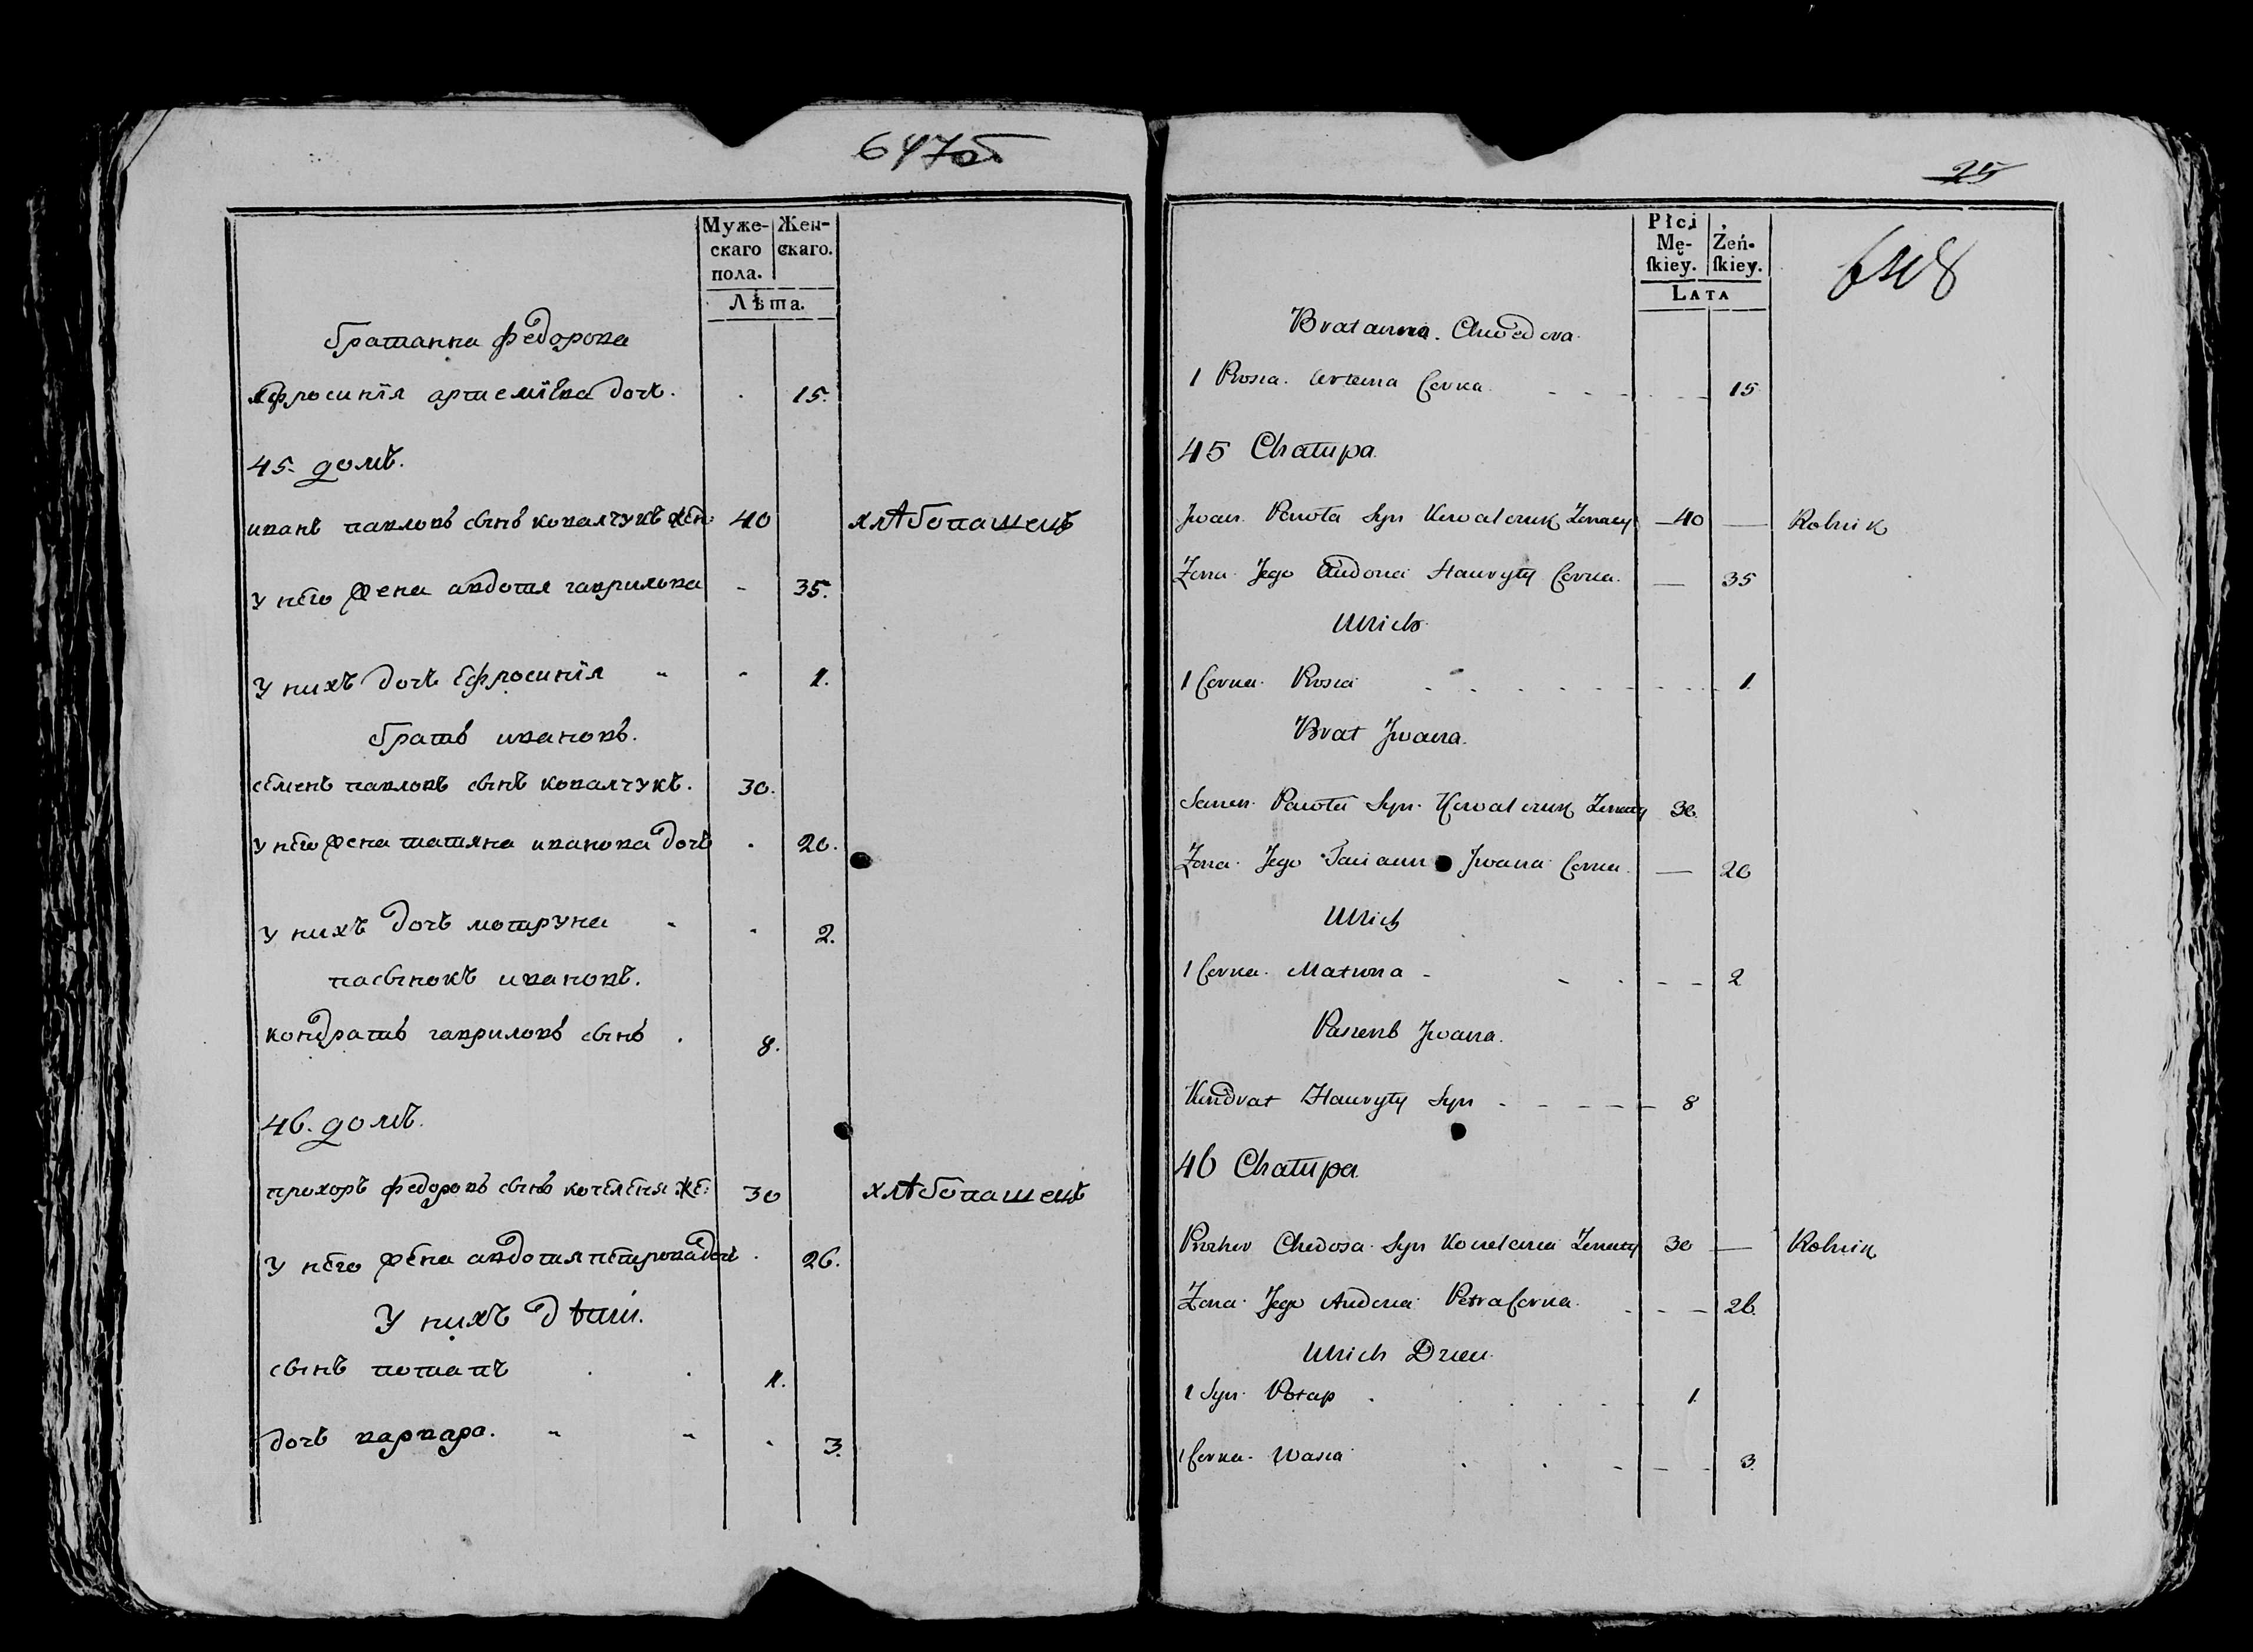 647об
Муже-
скаго
пола.
Жен-
скаго.
Лѣта.
братанна федорова
Ефросинїя артемїева дочь. 15.
45. домъ.
иванъ павловъ сынъ ковалчукъ жен: 40 хлѣбопашецъ
у него жена авдотия гаврилова - 35.
у нихъ дочь Ефросинїя - 1.
братъ ивановъ.
семенъ павловъ сынъ ковалчукъ. 30.
у него жена татяна иванова дочь 20.
у нихъ дочь мотруна 2.
пасынокъ ивановъ.
кондратъ гавриловъ сынъ 8.
46. домъ.
прохоръ федоровъ сынъ же: 30 хлѣбопашецъ
у него жена авдотия петрова дочь 26.
У нихъ дѣти.
сынъ потапъ 1.
дочь варвара. 3.
25
648
Płci
Mę-
skiey.
Żeń-
skiey.
Lata
Bratanna. Chwedora.
1 Rosia. Artema Corka. 15
45 Chałupa.
Jwan Pawła Syn Kowalczuk Żonaty 40 — Rolnik
Żona Jego Audocia Hawryły Corka. — 35
U Nich
1 Corka Rosia 1.
Brat Jwana.
Semen Pawła Syn Kowalczuk Żonaty 30.
Żona Jego Taciann Jwana Corka. — 20
U Nich
1 Corka Matrona - 2
Pasierb Jwana.
Kindrat Hawryły Syn 8
46 Chałupa
Prohor Chedora Syn Żonaty 30 — Rolnik
Żona Jego Audocia Petra Corka. 26.
U Nich Dzieci
1 Syn Potap 1.
1 Corka Wasia 3.